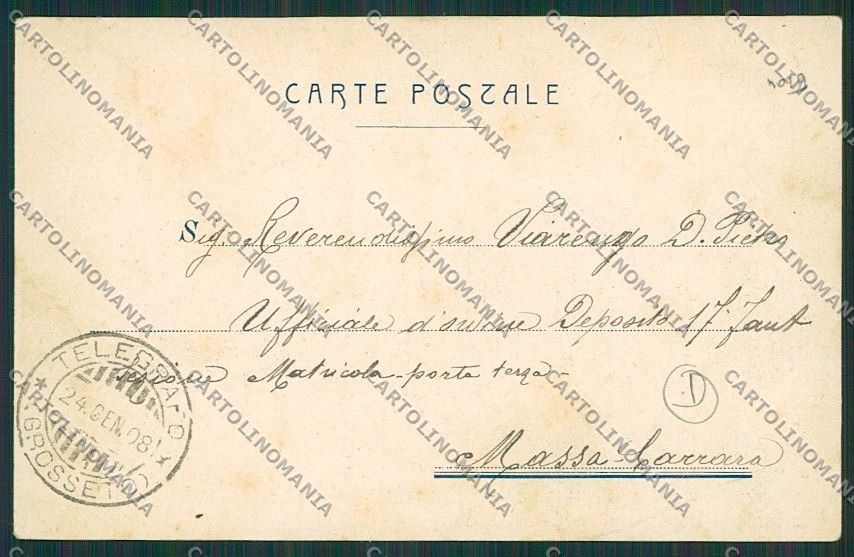 CARTE POSTALE
Sig. Reverendissimo Viarengo D.
Ufficiale d'ordine Deposito 17. Fant
Matricola - porta terza -
D
Massa-Carrara
TELEGRAFO
24.GEN.08
GROSSETO
CARTOLINOMANIA